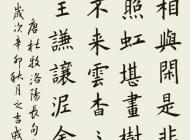 相與閑是非
照虹堪畫樹
不來雲杳
王謙讓泥金
唐杜牧洛陽長句
歲次辛卯秋月之吉